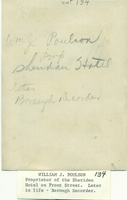 134
Wm J. Poulson
Prop
Sheridan Hotel
later
Borough Recorder
WILLIAM J. POULSON 134
Proprietor of the Sheridan
Hotel on Front Street. Later
in life - Borough Recorder.